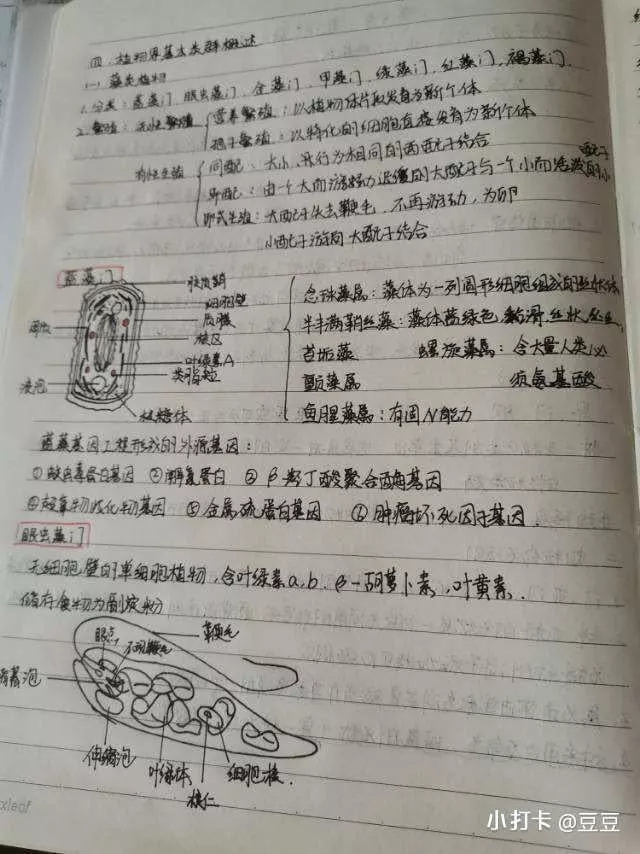 四、植物界基本类群概述
(一) 藻类植物
1.分类：蓝藻门、眼虫藻门、金藻门、甲藻门、绿藻门、红藻门、褐藻门.
2.繁殖：无性繁殖 营养繁殖：以植物体片段发育为新个体
孢子繁殖：以特化的细胞直接发育为新个体
有性生殖 同配：大小、形状为相同的两配子结合
异配：由一个大而游动迟缓的大配子与一个小而活泼的小配子
卵式生殖：大配子失去鞭毛，不再游动，为卵
小配子游向大配子结合
蓝藻门
胶质鞘
细胞壁
质膜
核区
叶绿素A
类脂粒
液泡
念珠藻属：藻体为一列圆形细胞组成的丝状体
藻体蓝绿色，黏滑，丝状，
螺旋藻属：含大量人类必
颤藻属 须氨基酸
鱼腥藻属：有固N能力
蓝藻基因工程形成的外源基因：
① 蛋白基因 ② 蛋白 ③ β-羟丁酸聚合酶基因
④ 基因 ⑤ 金属硫蛋白基因 ⑥ 肿瘤坏死因子基因.
眼虫藻门
无细胞壁的单细胞植物，含叶绿素a,b.β-胡萝卜素，叶黄素.
储存食物为副淀粉
眼点
鞭毛
不动鞭毛
伸缩泡
叶绿体
核仁
细胞核.
xleaf
小打卡 @豆豆